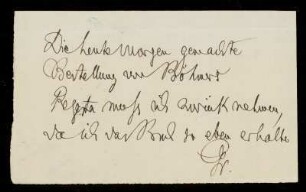 Die heute Morgen gemachte
Bestellung von Böhmers
muß ich zurück nehmen,
da ich das Buch so eben erhalte
Gr.